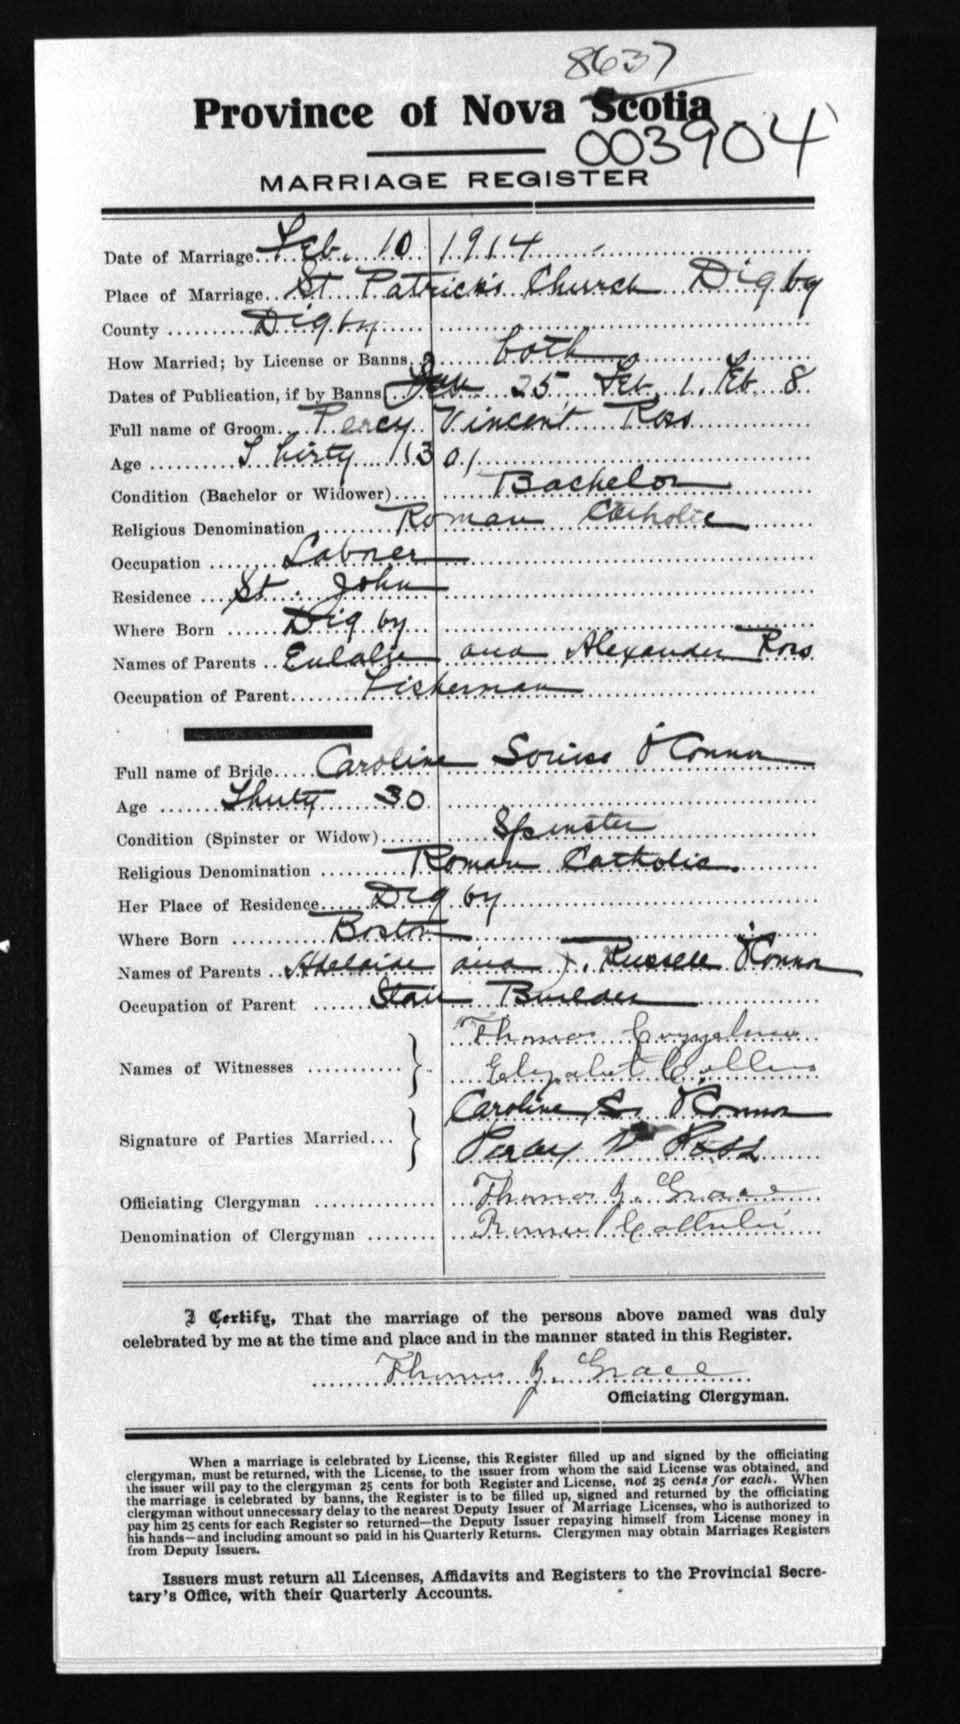 8637
Province of Nova Scotia
003904
MARRIAGE REGISTER
Date of Marriage Feb. 10 1914
Place of Marriage St Patrick's Church Digby
County Digby
How Married; by License or Banns both
Dates of Publication, if by Banns Jan 25, Feb. 1. Feb. 8
Full name of Groom Percy Vincent Ross
Age Thirty (30)
Condition (Bachelor or Widower) Bachelor
Religious Denomination Roman Catholic
Occupation Laborer
Residence St. John
Where Born Digby
Names of Parents Eulalie and Alexander Ross
Occupation of Parent Fisherman
Full name of Bride Caroline O'Connor
Age Thirty 30
Condition (Spinster or Widow) Spinster
Religious Denomination Roman Catholic.
Her Place of Residence Digby
Where Born Boston
Names of Parents Adelaide and J. Russell O'Connor
Occupation of Parent Stair Builder
Thomas
Names of Witnesses
Elizabeth Collins
Caroline S. O'Connor
Signature of Parties Married
Percy V Ross
Officiating Clergyman Thomas J. Grace
Denomination of Clergyman Roman Catholic
I Certify, That the marriage of the persons above named was duly
celebrated by me at the time and place and in the manner stated in this Register.
Thomas J. Grace
Officiating Clergyman.
When a marriage is celebrated by License, this Register filled up and signed by the officiating
clergyman, must be returned, with the License, to the issuer from whom the said License was obtained, and
the issuer will pay to the clergyman 25 cents for both Register and License, not 25 cents for each. When
the marriage is celebrated by banns, the Register is to be filled up, signed and returned by the officiating
clergyman without unnecessary delay to the nearest Deputy Issuer of Marriage Licenses, who is authorized to
pay him 25 cents for each Register so returned—the Deputy Issuer repaying himself from License money in
his hands—and including amount so paid in his Quarterly Returns. Clergymen may obtain Marriages Registers
from Deputy Issuers.
Issuers must return all Licenses, Affidavits and Registers to the Provincial Secre-
tary's Office, with their Quarterly Accounts.